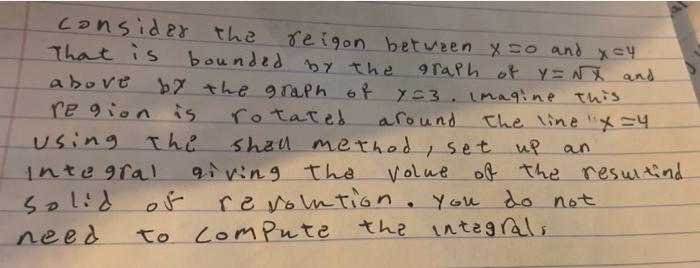 consider the reigon between x=0 and x=4
That is bounded by the graph of y=√x and
above by the graph of y=3. imagine this
region is rotated around the line "x=4
using the shell method, set up an
integral giving the volue of the resultind
solid of revolution. you do not
need to compute the integral.